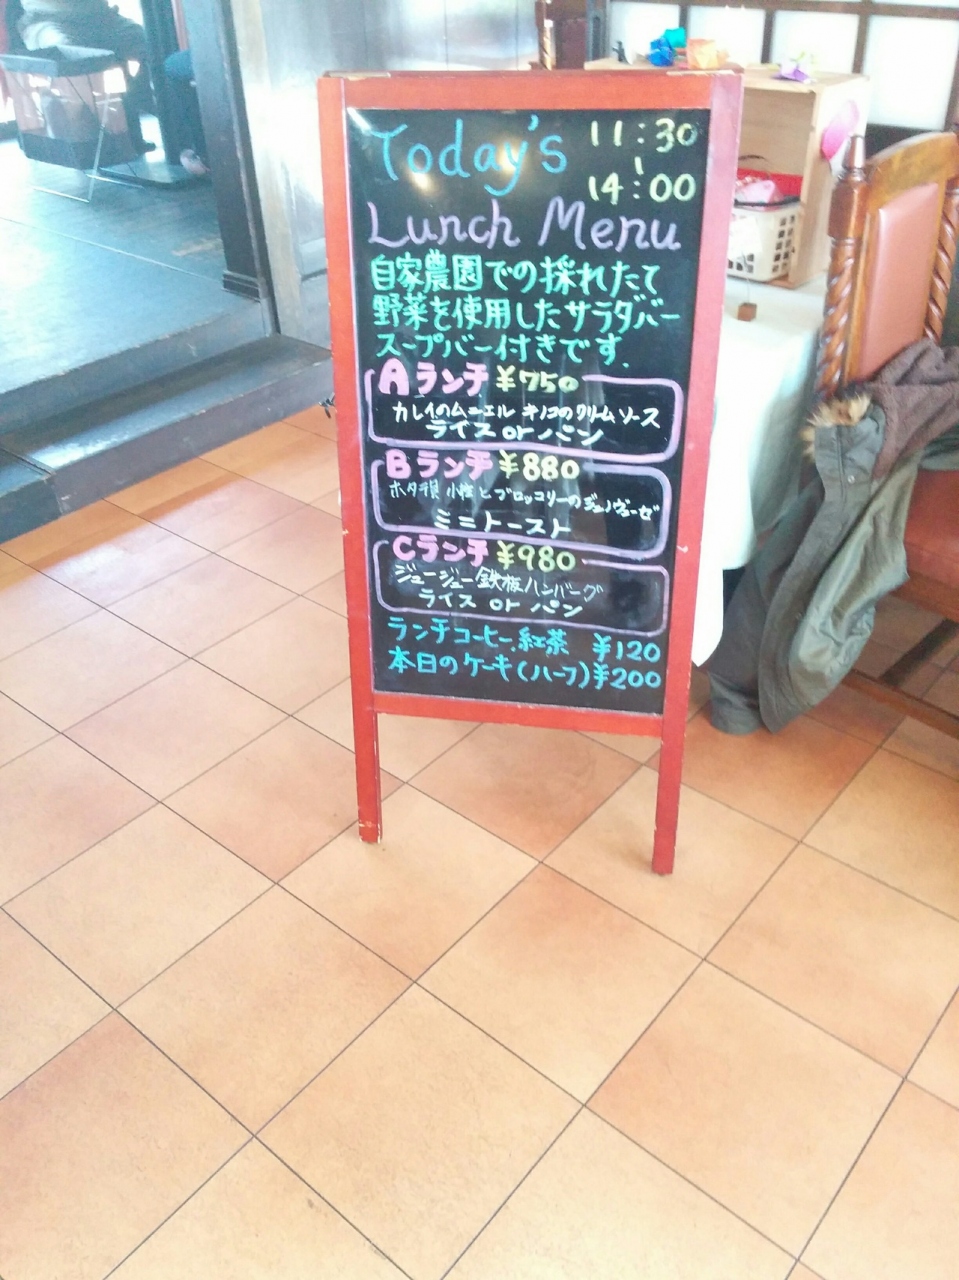 Today's 11:30
|
14:00
Lunch Menu
自家農園での採れたて
野菜を使用したサラダバー
スープバー付きです.
Aランチ ¥750
カレイのムニエル キノコのクリームソース
ライス or パン
Bランチ ¥880
ホタテ貝 小柱とブロッコリーのジェノヴェーゼ
ミニトースト
Cランチ ¥980
ジュージュー鉄板ハンバーグ
ライス or パン
ランチコーヒー、紅茶 ¥120
本日のケーキ(ハーフ)¥200